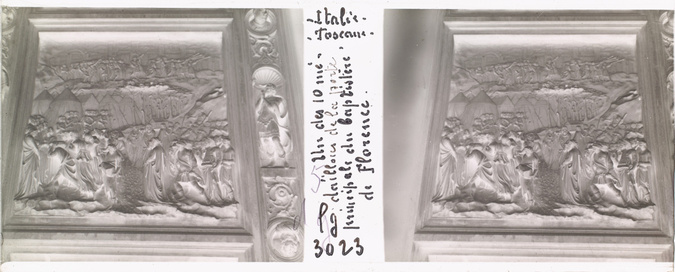 - Italie -
- Toscane -
Un des 10 mé-
daillons de la porte
principale du baptistère
de Florence.
3023